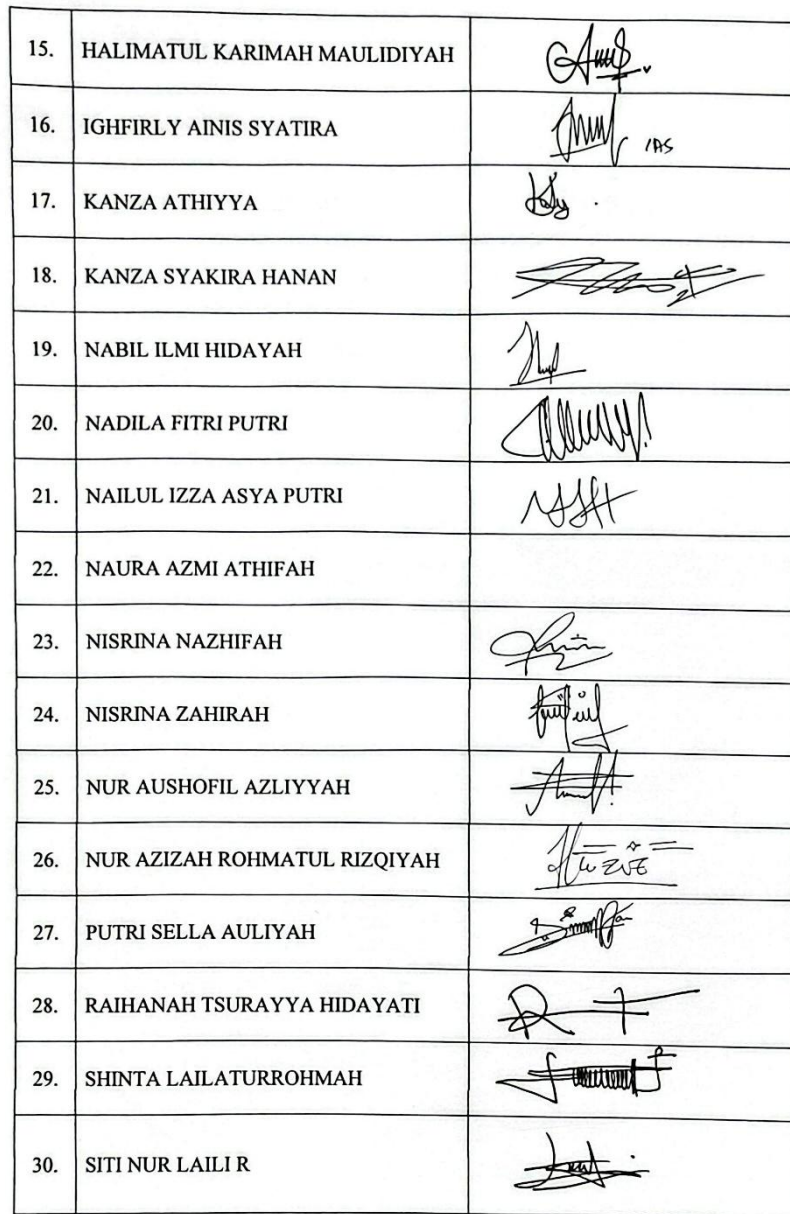 15. HALIMATUL KARIMAH MAULIDIYAH
16. IGHFIRLY AINIS SYATIRA IAS
17. KANZA ATHIYYA
18. KANZA SYAKIRA HANAN
19. NABIL ILMI HIDAYAH
20. NADILA FITRI PUTRI
21. NAILUL IZZA ASYA PUTRI
22. NAURA AZMI ATHIFAH
23. NISRINA NAZHIFAH
24. NISRINA ZAHIRAH
25. NUR AUSHOFIL AZLIYYAH
26. NUR AZIZAH ROHMATUL RIZQIYAH
27. PUTRI SELLA AULIYAH
28. RAIHANAH TSURAYYA HIDAYATI
29. SHINTA LAILATURROHMAH
30. SITI NUR LAILI R